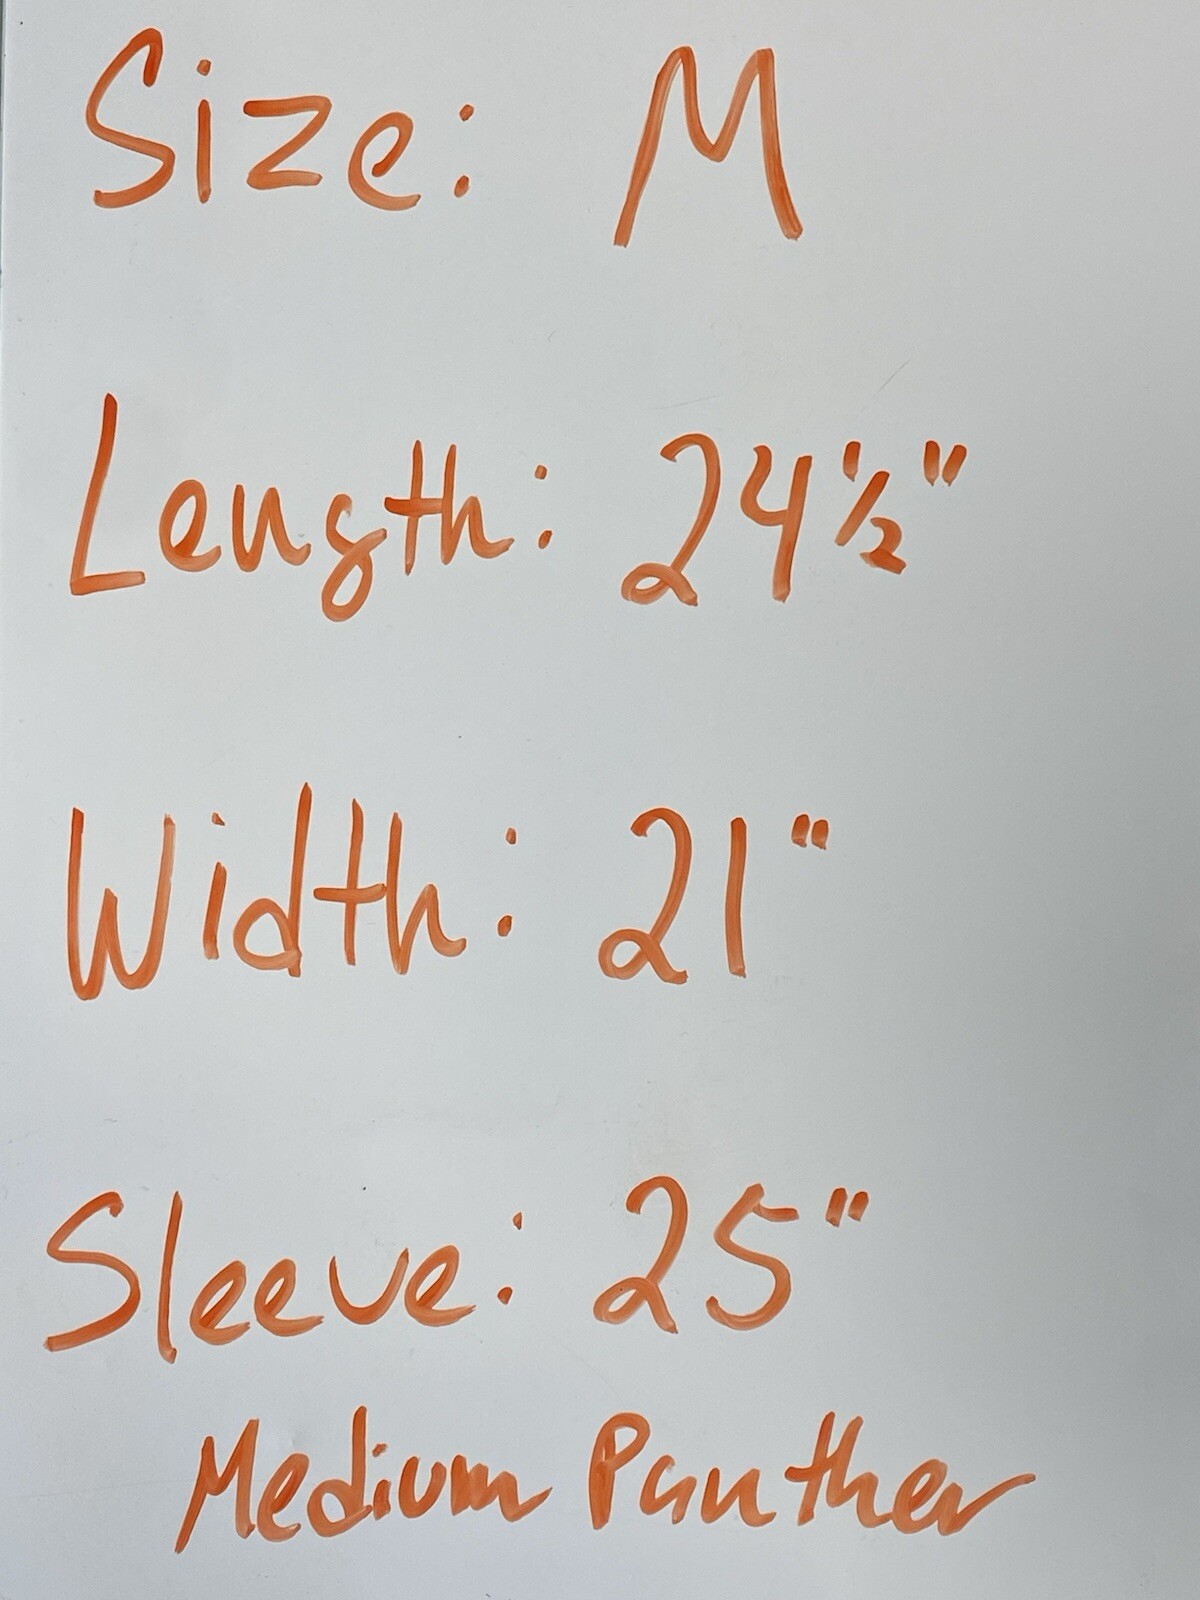 Size: M
Length: 24½"
Width: 21"
Sleeve: 25"
Medium Panther